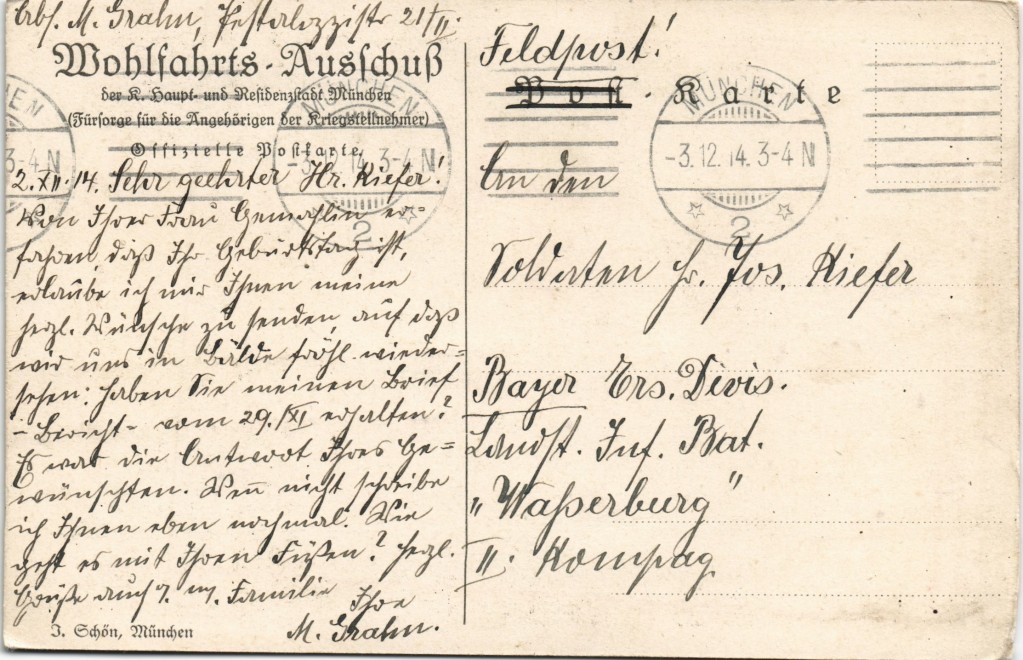 Abs. M. Grahn, Pestalozzistr 21/II.
Wohlfahrts-Ausschuß
der K. Haupt- und Residenzstadt München
(Fürsorge für die Angehörigen der Kriegsteilnehmer)
Offizielle Postkarte
2.XII.14. Sehr geehrter Hr. Kiefer!
Von Ihrer Frau Gemahlin er-
fahren, daß Ihr Geburtstag ist,
erlaube ich mir Ihnen meine
herzl. Wünsche zu senden, auf daß
wir uns in Bälde fröhl. wieder=
sehen. Haben Sie meinen Brief
- Bericht - vom 29./XI erhalten?
Es war die Antwort Ihres Ge=
wünschten. Wenn nicht schreibe
ich Ihnen eben nochmal. Wie
geht es mit Ihren Füßen? Herzl.
Grüße auch v. m. Familie Ihre
M. Grahn.
J. Schön, München
Feldpost!
Post-Karte
MÜNCHEN
-3.12.14. 3-4 N
2
An den
Soldaten Hr. Jos. Kiefer
Bayer Ers. Divis.
Landst. Inf. Bat.
"Waßerburg"
II. Kompag